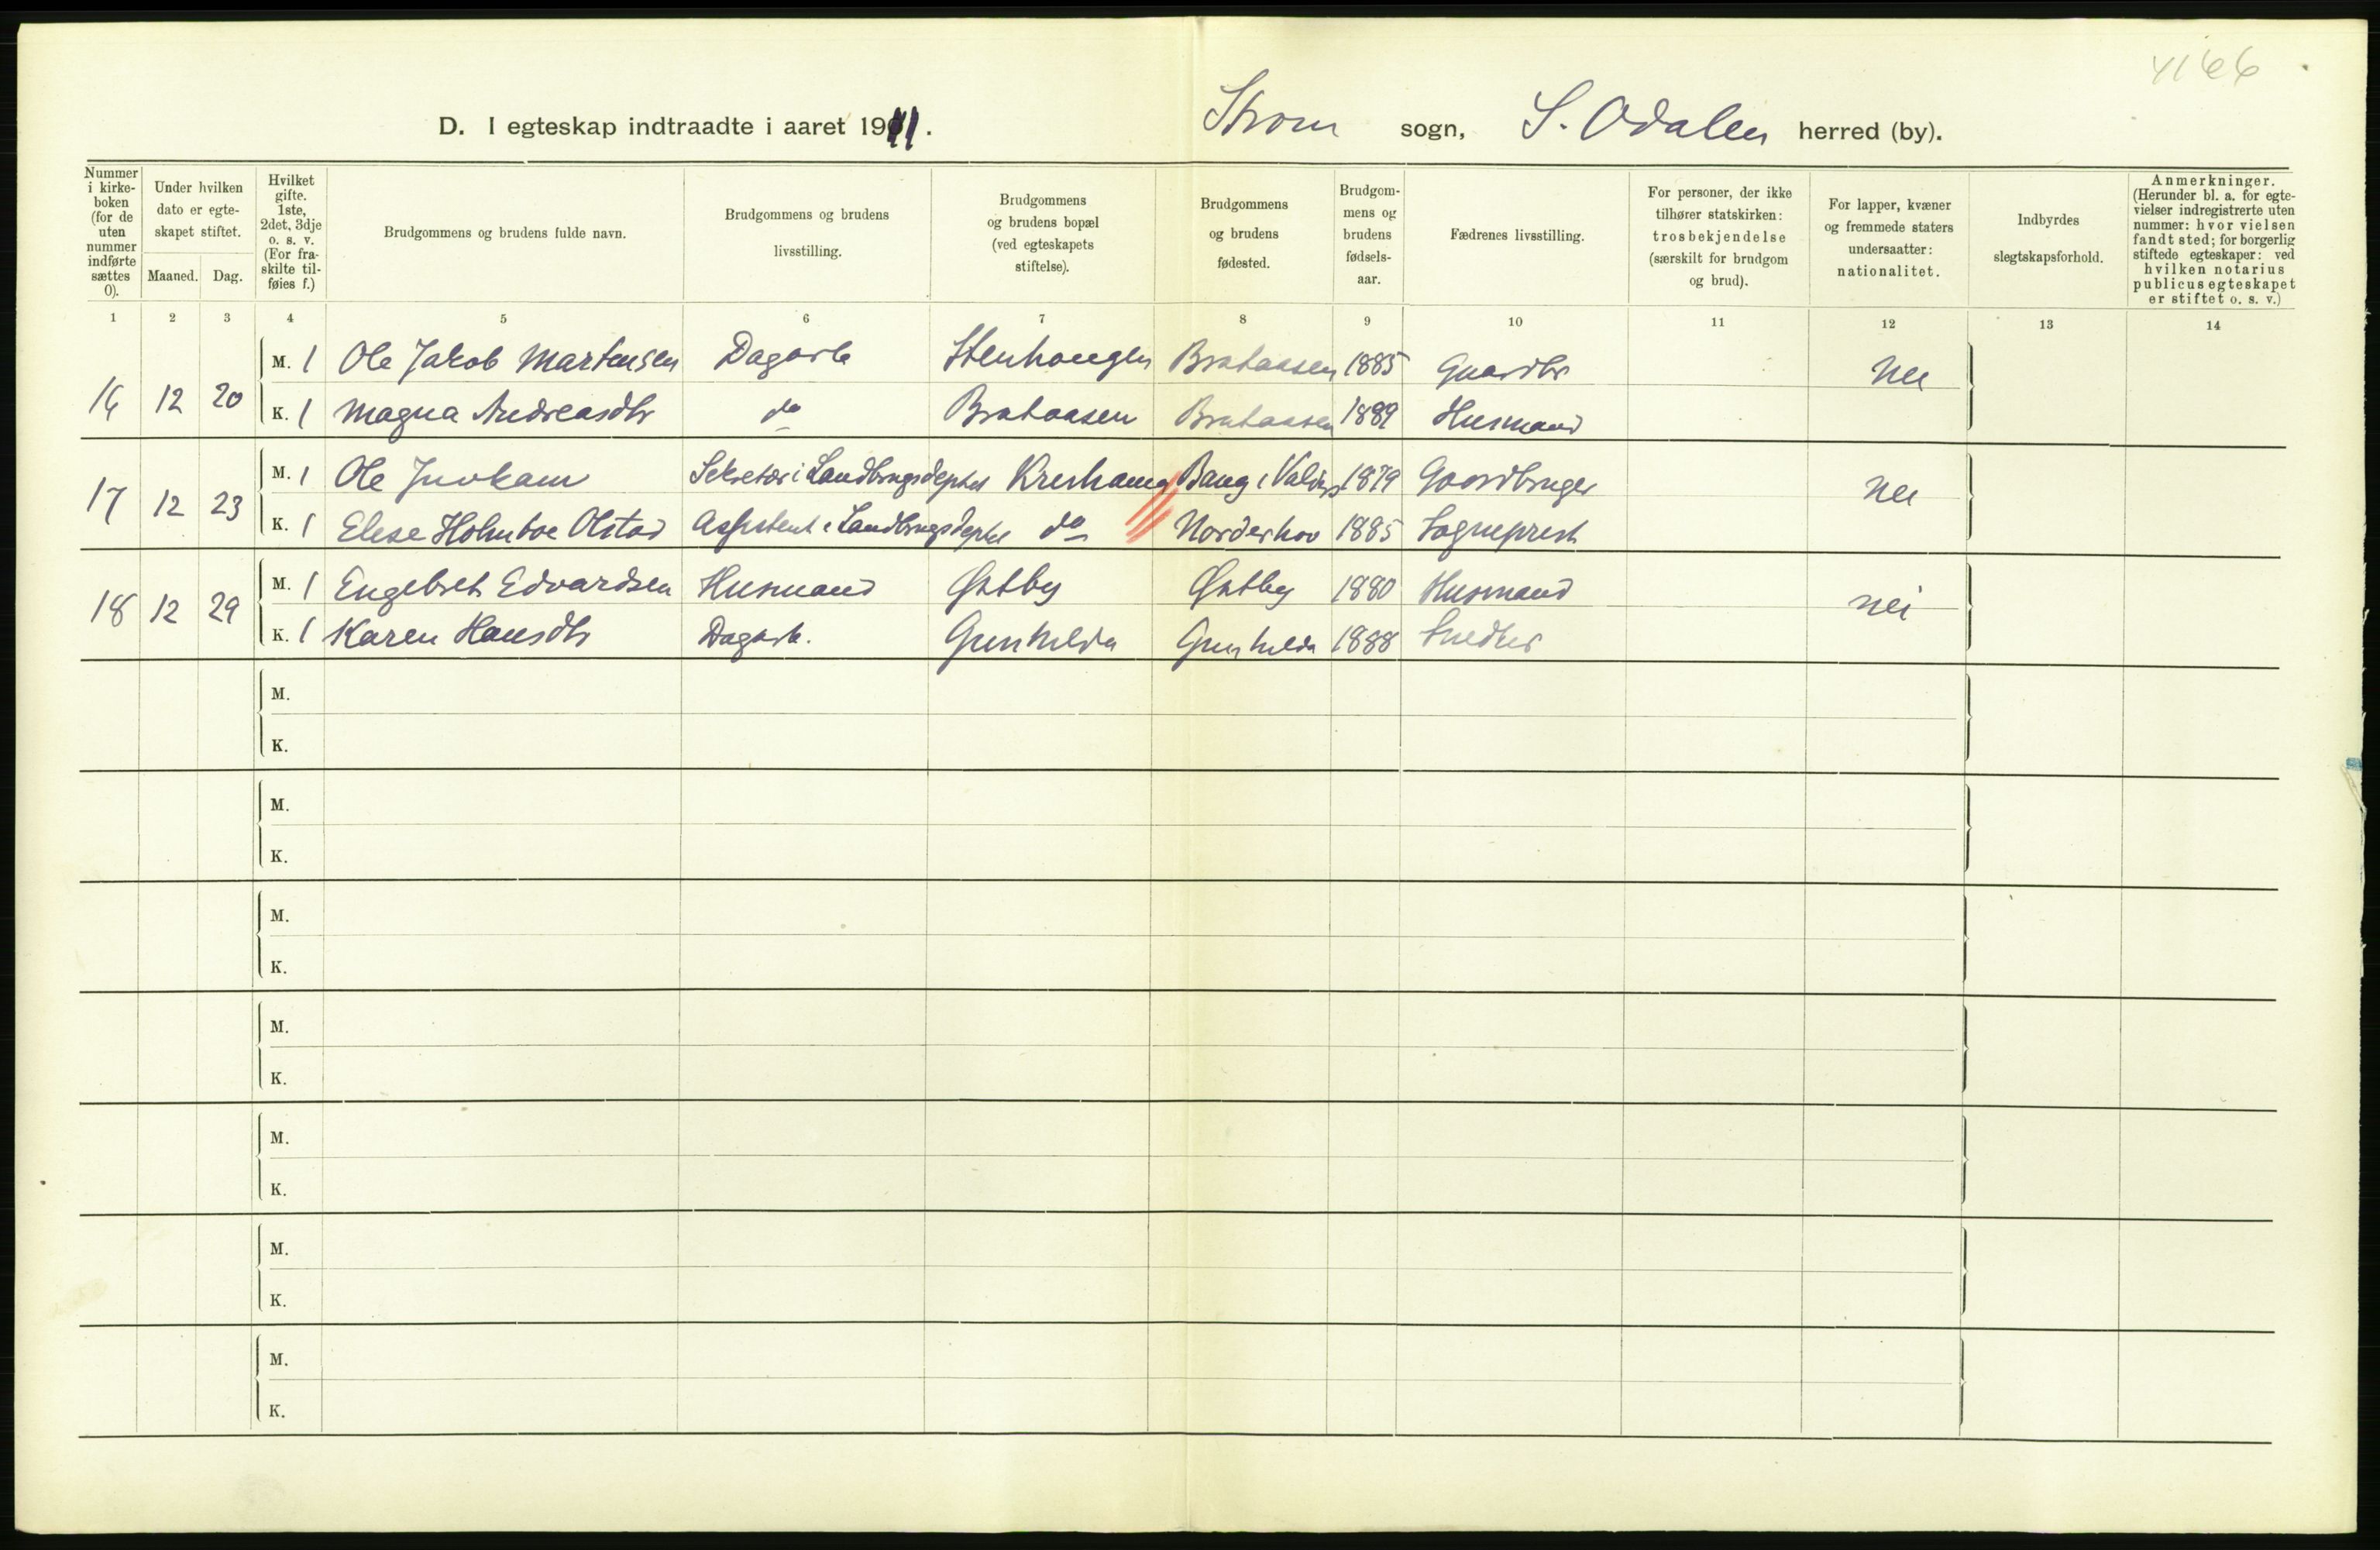 4166
D. I egteskap indtraadte i aaret 1911. Strøm sogn, S. Odalen herred (by).
Nummer i kirkeboken (for de uten nummer indførte sættes 0).
Under hvilken dato er egteskapet stiftet.
Maaned. Dag.
Hvilket gifte. 1ste, 2det, 3dje o. s. v. (For fraskilte tilføies f.)
Brudgommens og brudens fulde navn.
Brudgommens og brudens livsstilling.
Brudgommens og brudens bopæl (ved egteskapets stiftelse).
Brudgommens og brudens fødested.
Brudgommens og brudens fødselsaar.
Fædrenes livsstilling.
For personer, der ikke tilhører statskirken: trosbekjendelse (særskilt for brudgom og brud).
For lapper, kvæner og fremmede staters undersaatter: nationalitet.
Indbyrdes slegtskapsforhold.
Anmerkninger. (Herunder bl. a. for egtevielser indregistrerte uten nummer: hvor vielsen fandt sted; for borgerlig stiftede egteskaper: ved hvilken notarius publicus egteskapet er stiftet o. s. v.)
1 2 3 4 5 6 7 8 9 10 11 12 13 14
16 12 20 M. 1 Ole Jakob Martensen Dagarb Stenhaugen Brataasen 1885 Gaardbr Nei
K. 1 Magna Andreasdtr do Brataasen Brataasen 1889 Husmand
17 12 23 M. 1 Ole Juvkam Sekretær i Landbrugsdeptet Kristiania Bang i Valdres 1879 Gaardbruger Nei
K. 1 Elise Holmboe Olstad Assistent i Landbrugsdeptet do Norderhov 1885 Sogneprest
18 12 29 M. 1 Engebret Edvardsen Husmand Østby Østby 1880 Husmand nei
K. 1 Karen Hansdtr Dagarb. Gunhilda Gunhilda 1888 Snedker
M.
K.
M.
K.
M.
K.
M.
K.
M.
K.
M.
K.
M.
K.